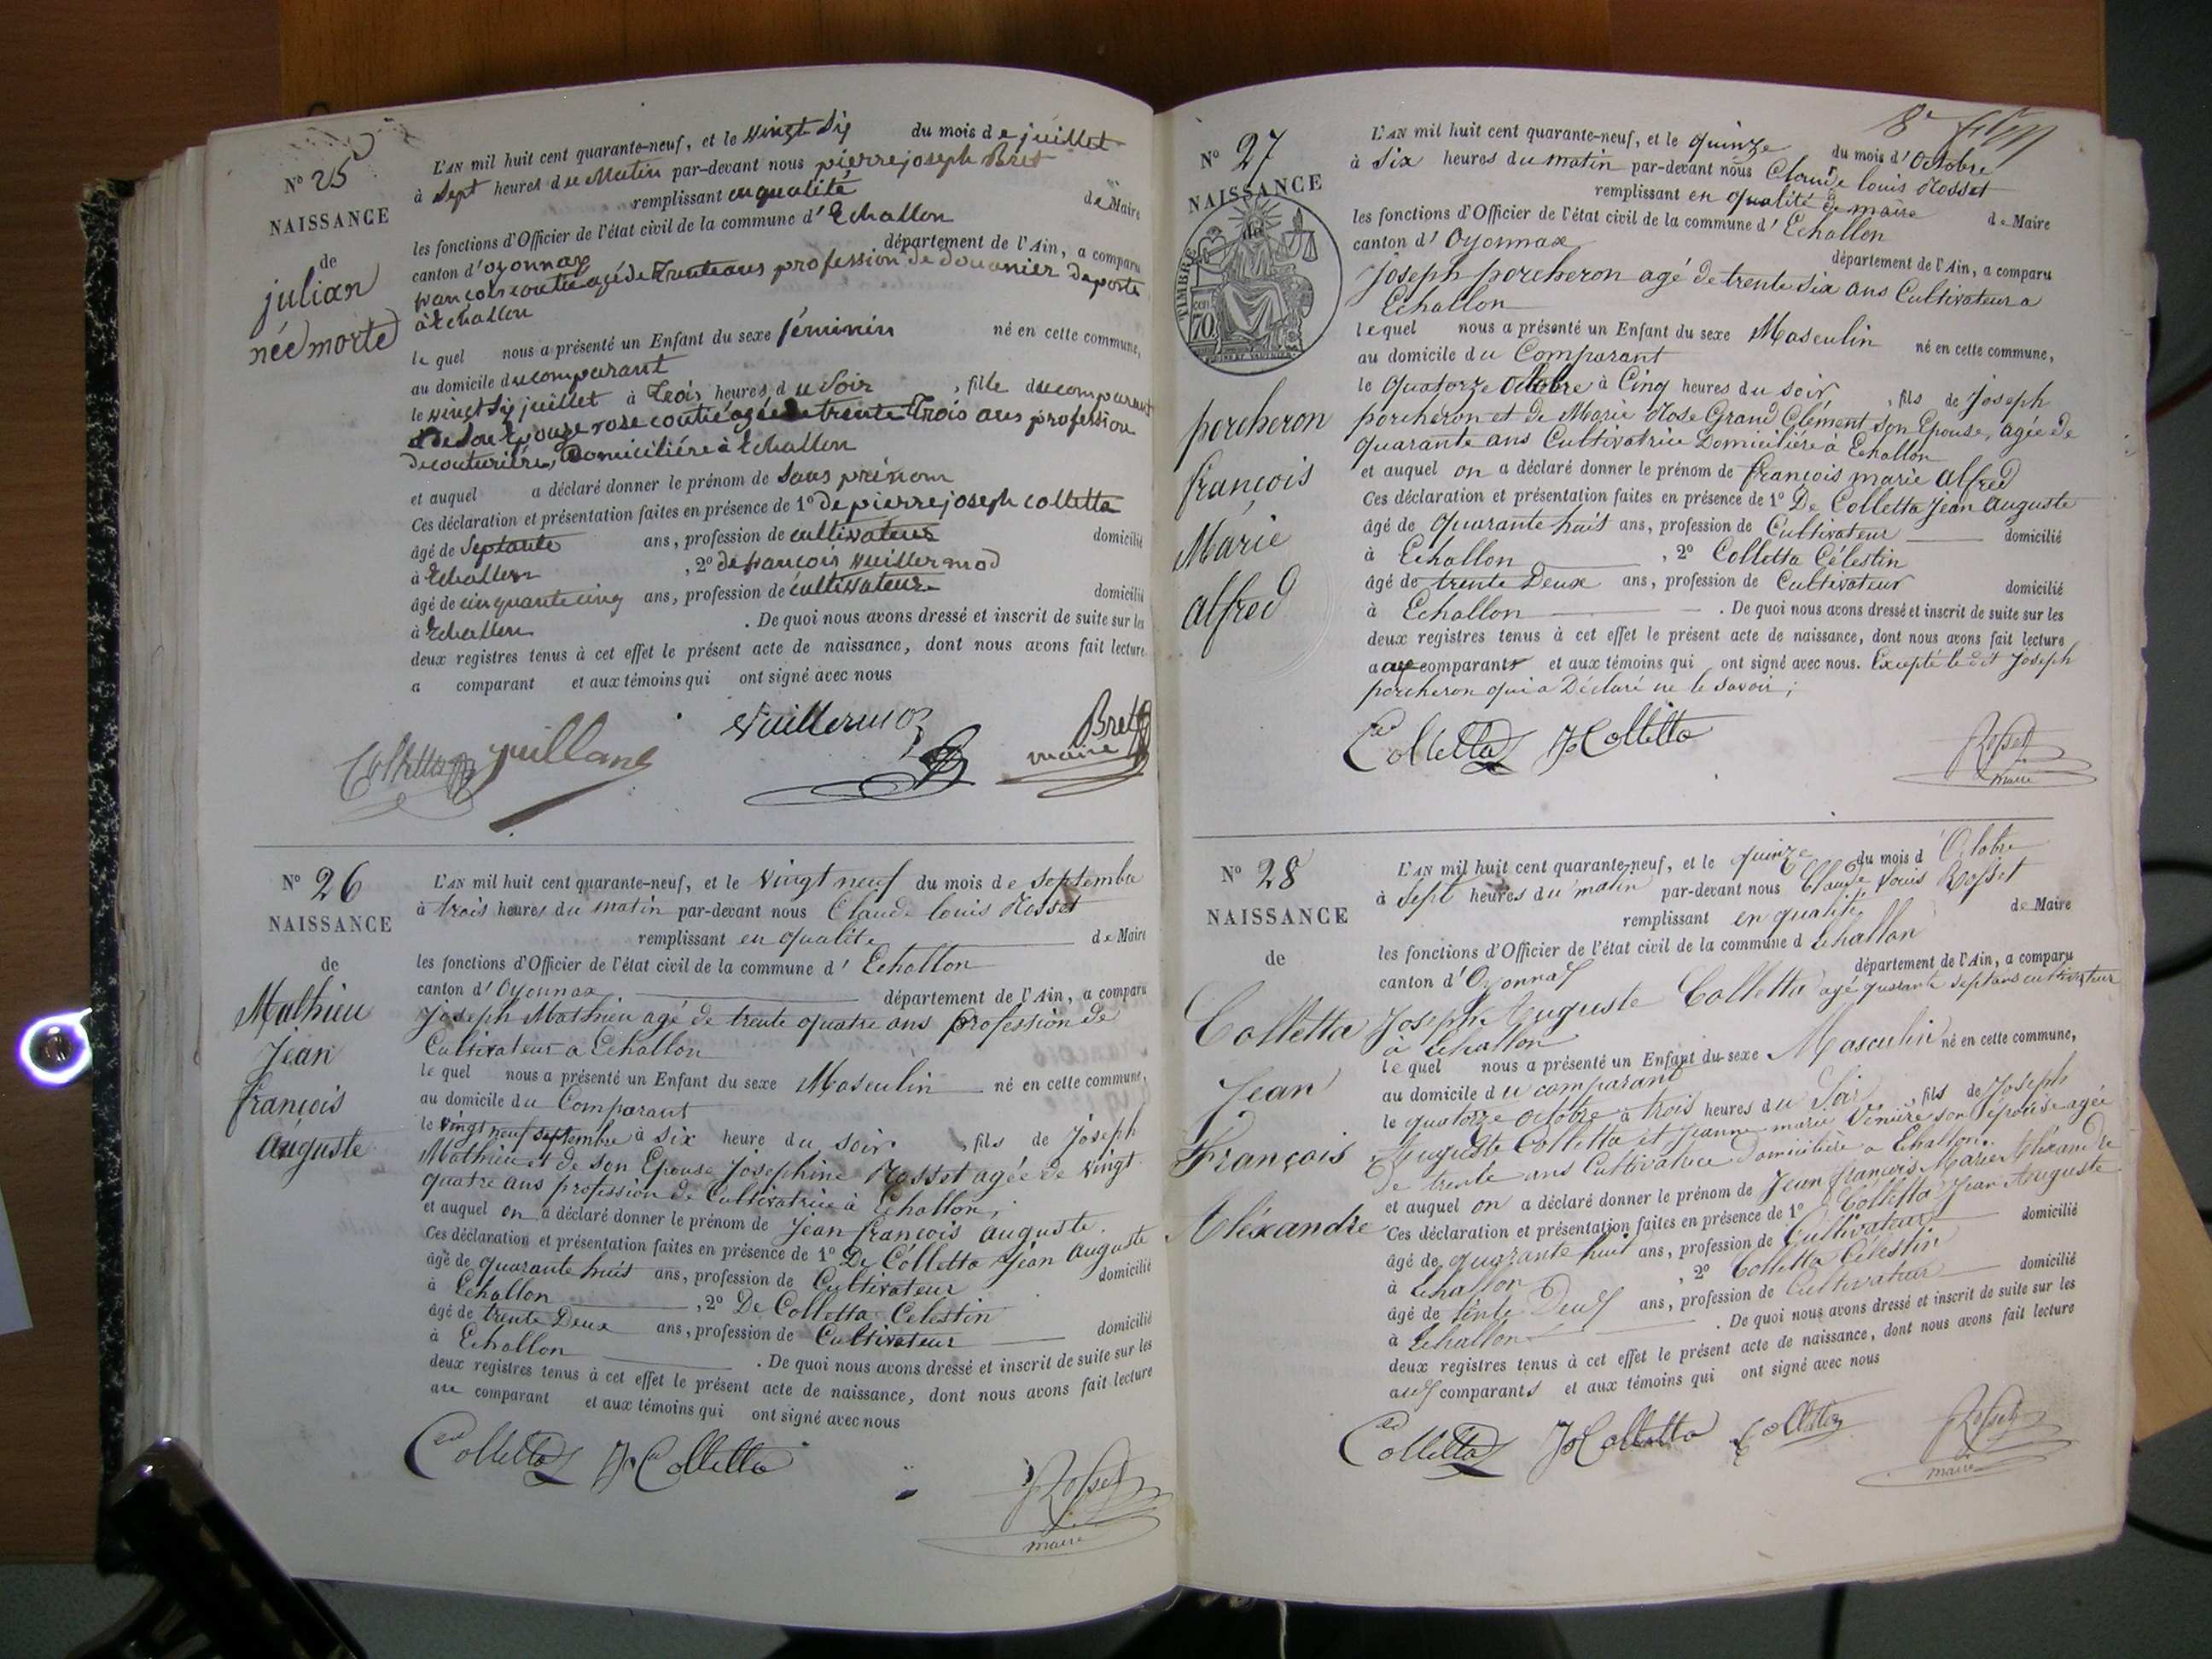 N° 25
NAISSANCE
de
julian
née morte
L'AN mil huit cent quarante-neuf, et le vingt six du mois de juillet
à sept heures du Matin par-devant nous pierre joseph Bret
remplissant en qualité de Maire
les fonctions d'Officier de l'état civil de la commune d'Echallon
canton d'oyonnax département de l'Ain, a comparu
françois agé de trente ans profession de douanier de poste
à Echallon
le quel nous a présenté un Enfant du sexe féminin né en cette commune,
au domicile du comparant
le vingt six juillet à trois heures du Soir, fille du comparant
et de Son Epouse rose agée de trente trois ans profession
de couturière, Domiciliére à Echallon
et auquel a déclaré donner le prénom de Sans prénom
Ces déclaration et présentation faites en présence de 1° De pierre joseph colletta
âgé de Septante ans, profession de cultivateur domicilié
à Echallon, 2° de françois Vuillermoz
âgé de cinquante cinq ans, profession de cultivateur domicilié
à Echallon. De quoi nous avons dressé et inscrit de suite sur les
deux registres tenus à cet effet le présent acte de naissance, dont nous avons fait lecture
a comparant et aux témoins qui ont signé avec nous
Colletta Vuillermoz Bret
maire
N° 26
NAISSANCE
de
Mathieu
Jean
françois
Auguste
L'AN mil huit cent quarante-neuf, et le Vingt neuf du mois de Septembre
à trois heures du matin par-devant nous Claude louis Rosset
remplissant en qualité de Maire
les fonctions d'Officier de l'état civil de la commune d'Echallon
canton d'Oyonnax département de l'Ain, a comparu
Joseph Mathieu agé de trente quatre ans profession de
Cultivateur a Echallon
le quel nous a présenté un Enfant du sexe Masculin né en cette commune,
au domicile du Comparant
le vingt neuf septembre à six heure du soir, fils de Joseph
Mathieu et de son Epouse Joséphine Rosset agée de vingt
quatre ans profession de Cultivatrice à Echallon;
et auquel on a déclaré donner le prénom de Jean françois auguste.
Ces déclaration et présentation faites en présence de 1° De Colletta Jean Auguste
âgé de quarante huit ans, profession de Cultivateur domicilié
à Echallon, 2° De Colletta Celestin
âgé de trente Deux ans, profession de Cultivateur domicilié
à Echallon. De quoi nous avons dressé et inscrit de suite sur les
deux registres tenus à cet effet le présent acte de naissance, dont nous avons fait lecture
au comparant et aux témoins qui ont signé avec nous
Colletta Colletta Rosset
maire
N° 27
NAISSANCE
de
TIMBRE
70
porcheron
françois
Marie
alfred
L'AN mil huit cent quarante-neuf, et le quinze du mois d'Octobre
à Six heures du matin par-devant nous Claude louis Rosset
remplissant en qualité de maire de Maire
les fonctions d'Officier de l'état civil de la commune d'Echallon
canton d'Oyonnax département de l'Ain, a comparu
Joseph porcheron agé de trente Six ans Cultivateur a
Echallon
le quel nous a présenté un Enfant du sexe Masculin né en cette commune,
au domicile du Comparant
le Quatorze Octobre à Cinq heures du soir, fils de Joseph
porcheron et de Marie Rose Grand Clément son Epouse, agée de
quarante ans Cultivatrice Domiciliére à Echallon
et auquel on a déclaré donner le prénom de françois marie alfred
Ces déclaration et présentation faites en présence de 1° De Colletta Jean Auguste
âgé de Quarante huit ans, profession de Cultivateur domicilié
à Echallon, 2° Colletta Célestin
âgé de trente Deux ans, profession de Cultivateur domicilié
à Echallon. De quoi nous avons dressé et inscrit de suite sur les
deux registres tenus à cet effet le présent acte de naissance, dont nous avons fait lecture
aux comparants et aux témoins qui ont signé avec nous. Excepté le dit Joseph
porcheron qui a Déclaré ne le savoir;
Colletta Colletta Rosset
maire
N° 28
NAISSANCE
de
Colletta
Jean
François
Aléxandre
L'AN mil huit cent quarante-neuf, et le quinze du mois d'Octobre
à Sept heures du matin par-devant nous Claude Louis Rosset
remplissant en qualité de Maire
les fonctions d'Officier de l'état civil de la commune d Echallon
canton d'Oyonnax département de l'Ain, a comparu
Joseph Auguste Colletta agé quarante sept ans cultivateur
à Echallon
le quel nous a présenté un Enfant du sexe Masculin né en cette commune,
au domicile du comparant
le quatorze octobre à trois heures du Soir, fils de Joseph
Auguste Colletta et Jeanne marie son épouse agée
De trente ans Cultivatrice Domiciliére a Echallon.
et auquel on a déclaré donner le prénom de Jean françois Marie Aléxandre
Ces déclaration et présentation faites en présence de 1° Colletta Jean Auguste
âgé de quarante huit ans, profession de Cultivateur domicilié
à Echallon, 2° Colletta Célestin
âgé de trente Deux ans, profession de Cultivateur domicilié
à Echallon. De quoi nous avons dressé et inscrit de suite sur les
deux registres tenus à cet effet le présent acte de naissance, dont nous avons fait lecture
aux comparants et aux témoins qui ont signé avec nous
Colletta Colletta Colletta Rosset
maire